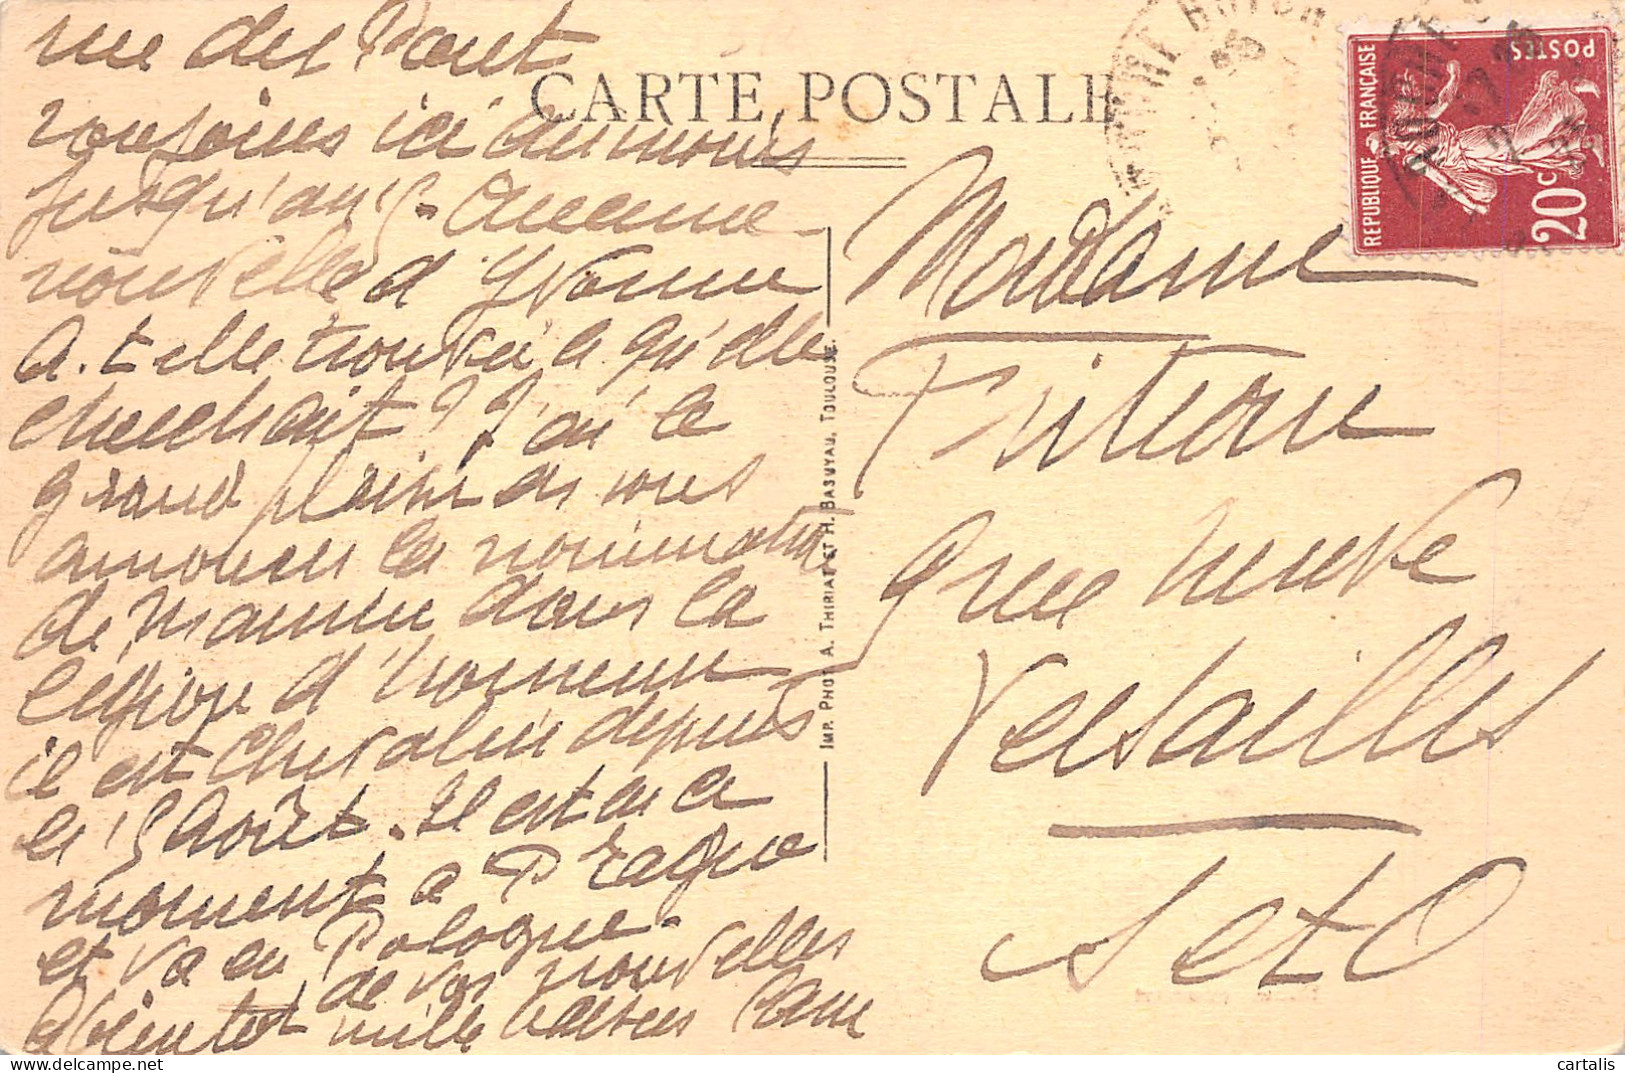 rue du Pont
CARTE POSTALE
toujours ici du moins
jusqu'au 15 - Aucune
nouvelle d'Yvonne
A. t elle trouvé ce qu'elle
cherchait ? J'ai le
grand plaisir de vous
annoncer la nomination
de Maurice dans la
légion d'honneur
il est chevalier depuis
le 15 Août. Il est en ce
moment a Prague
et va en Pologne.
A bientot de vos nouvelles
mille baisers
Madame
rue neuve
Versailles
S et O
IMP. PHOT. A. THIRIAT ET H. BASUYAU, TOULOUSE.
REPUBLIQUE FRANÇAISE
POSTES
20 C
cartalis